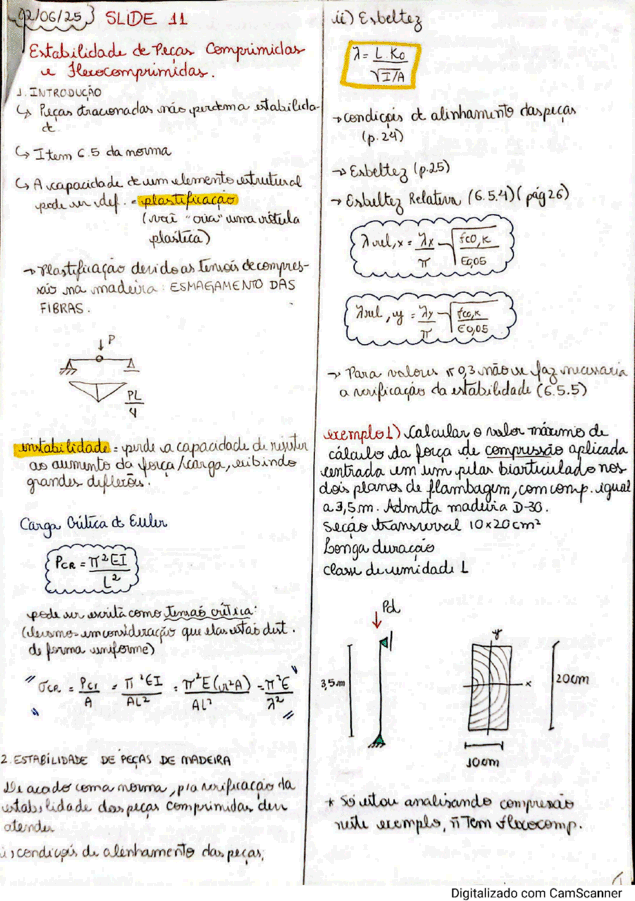 02/06/25 SLIDE 11
Estabilidade de Peças Comprimidas
e Flexocomprimidas.
1. INTRODUÇÃO
↳ Peças tracionadas não perdem a estabilida
de
↳ Item 6.5 da norma
↳ A capacidade de um elemento estrutural
pode ser def. = plastificação
(vai "cria" uma rótula
plástica)
→ Plastificação devido as tensões de compres-
são na madeira: ESMAGAMENTO DAS
FIBRAS.
P
PL
4
instabilidade = perde a capacidade de resistir
ao aumento da força/carga, exibindo
grandes deflexões.
Carga Crítica de Euler
PCR = π²EI
L²
pode ser escrita como tensão crítica:
de forma uniforme)
" σCR = PCR = π²EI = π²E(r²A) = π²E "
A AL² AL² λ²
2. ESTABILIDADE DE PEÇAS DE MADEIRA
De acodo com a norma, pra verificação da
estabilidade das peças comprimidas deve
atender
i) condições de alinhamento das peças,
ii) Esbeltez
λ = L.K0
√I/A
→ condições de alinhamento das peças
(p.24)
→ Esbeltez (p.25)
→ Esbeltez Relativa (6.5.4) (pág 26)
λrel,x = λx √fc0,k
π E0,05
λrel,y = λy √fc0,k
π E0,05
→ Para valores ≤ 0,3 não se faz necessária
a verificação da estabilidade (6.5.5)
exemplo 1) Calcular o valor máximo de
cálculo da força de compressão aplicada
centrada em um pilar biarticulado nos
dois planos de flambagem, com comp. igual
a 3,5m. Admita madeira D-30.
Seção transversal 10x20cm²
Longa duração
classe de umidade 1
Pd
3,5m
y
x
20cm
10cm
* Só estou analisando compressão
neste exemplo, ñ tem flexocomp.
Digitalizado com CamScanner